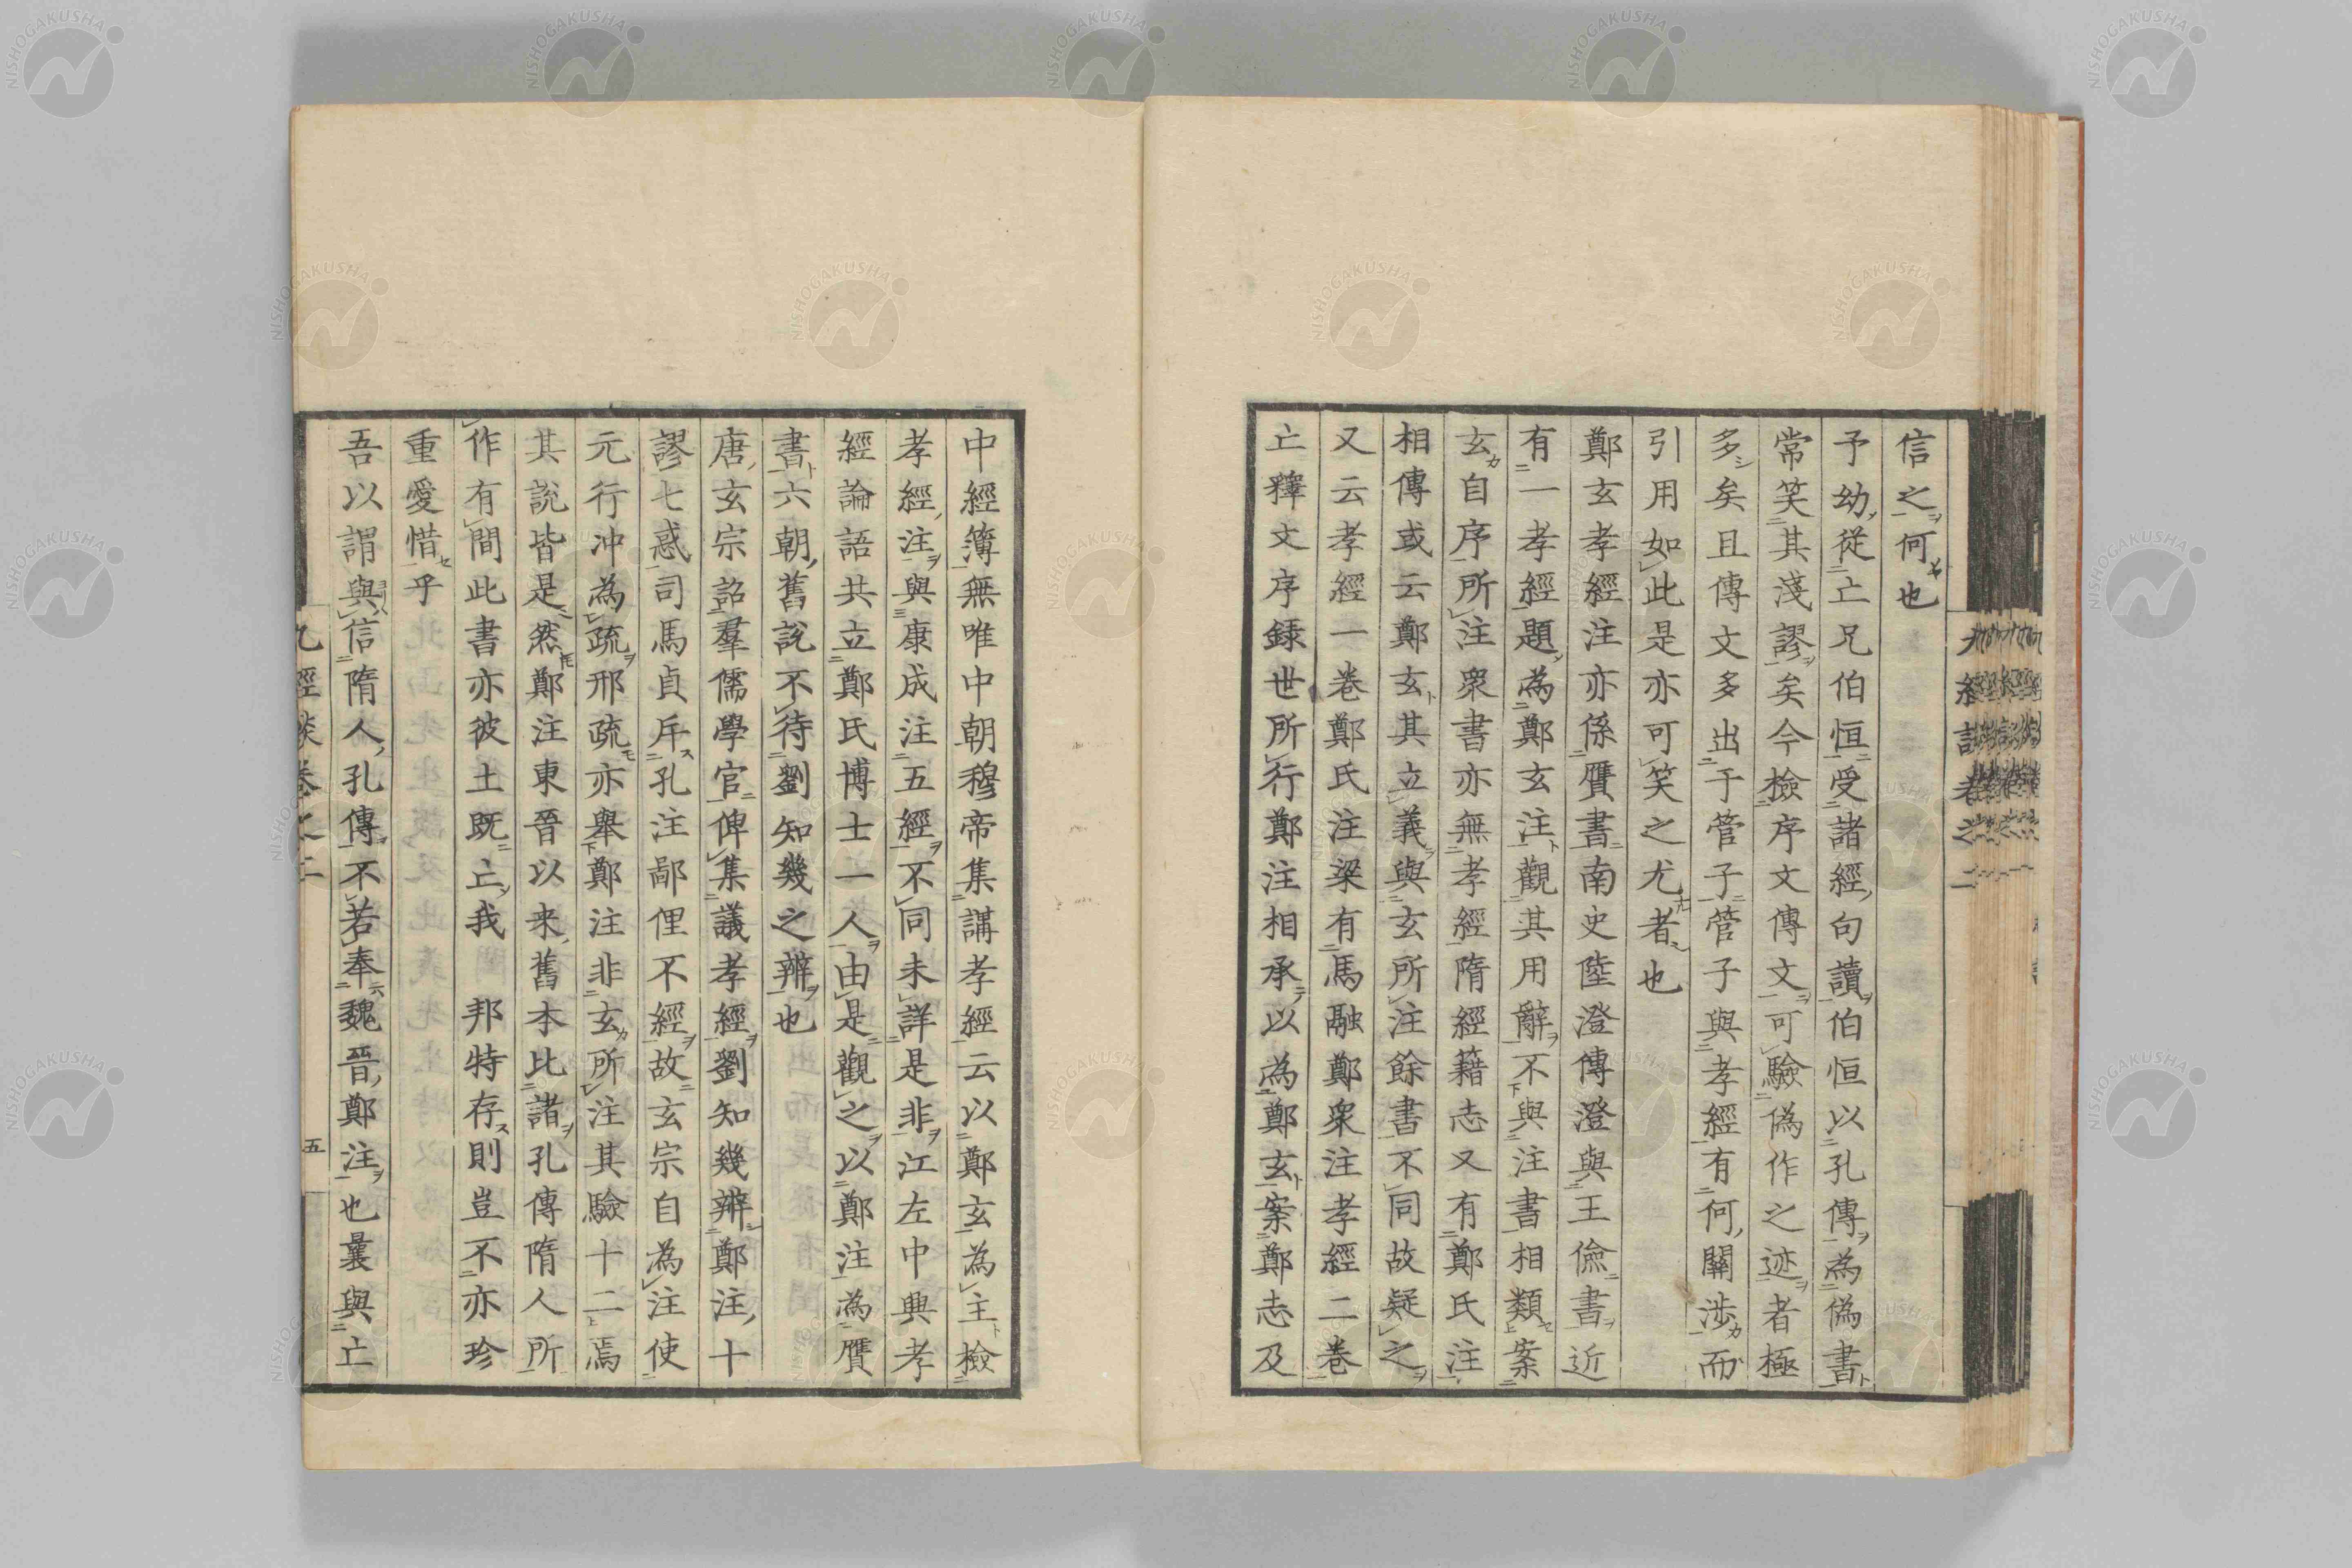 信之何也
予幼從亡兄伯恒受諸經句讀伯恒以孔傳為偽書
常笑其淺謬矣今檢序文傳文可驗偽作之迹者極
多矣且傳文多出于管子管子與孝經有何關渉而
引用如此是亦可笑之尤者也
鄭玄孝經注亦係贋書南史陸澄傳澄與王儉書近
有一孝經題為鄭玄注觀其用辭不與注書相類案
玄自序所注衆書亦無孝經隋經籍志又有鄭氏注
相傳或云鄭玄其立義與玄所注餘書不同故疑之
又云孝經一卷鄭氏注梁有馬融鄭衆注孝經二卷
亡釋文序録世所行鄭注相承以為鄭玄案鄭志及
中經簿無唯中朝穆帝集講孝經云以鄭玄為主檢
孝經注與康成注五經不同未詳是非江左中興孝
經論語共立鄭氏博士一人由是觀之以鄭注為贋
書六朝舊說不待劉知幾之辨也
唐玄宗詔羣儒學官俾集議孝經劉知幾辨鄭注十
謬七惑司馬貞斥孔注鄙俚不經故玄宗自為注使
元行冲為疏邢疏亦舉鄭注非玄所注其驗十二焉
其說皆是然鄭注東晉以来舊本比諸孔傳隋人所
作有間此書亦彼土既亡我　邦特存則豈不亦珍
重愛惜乎
吾以謂與信隋人孔傳不若奉魏晉鄭注也曩與亡
九經談卷之二
五